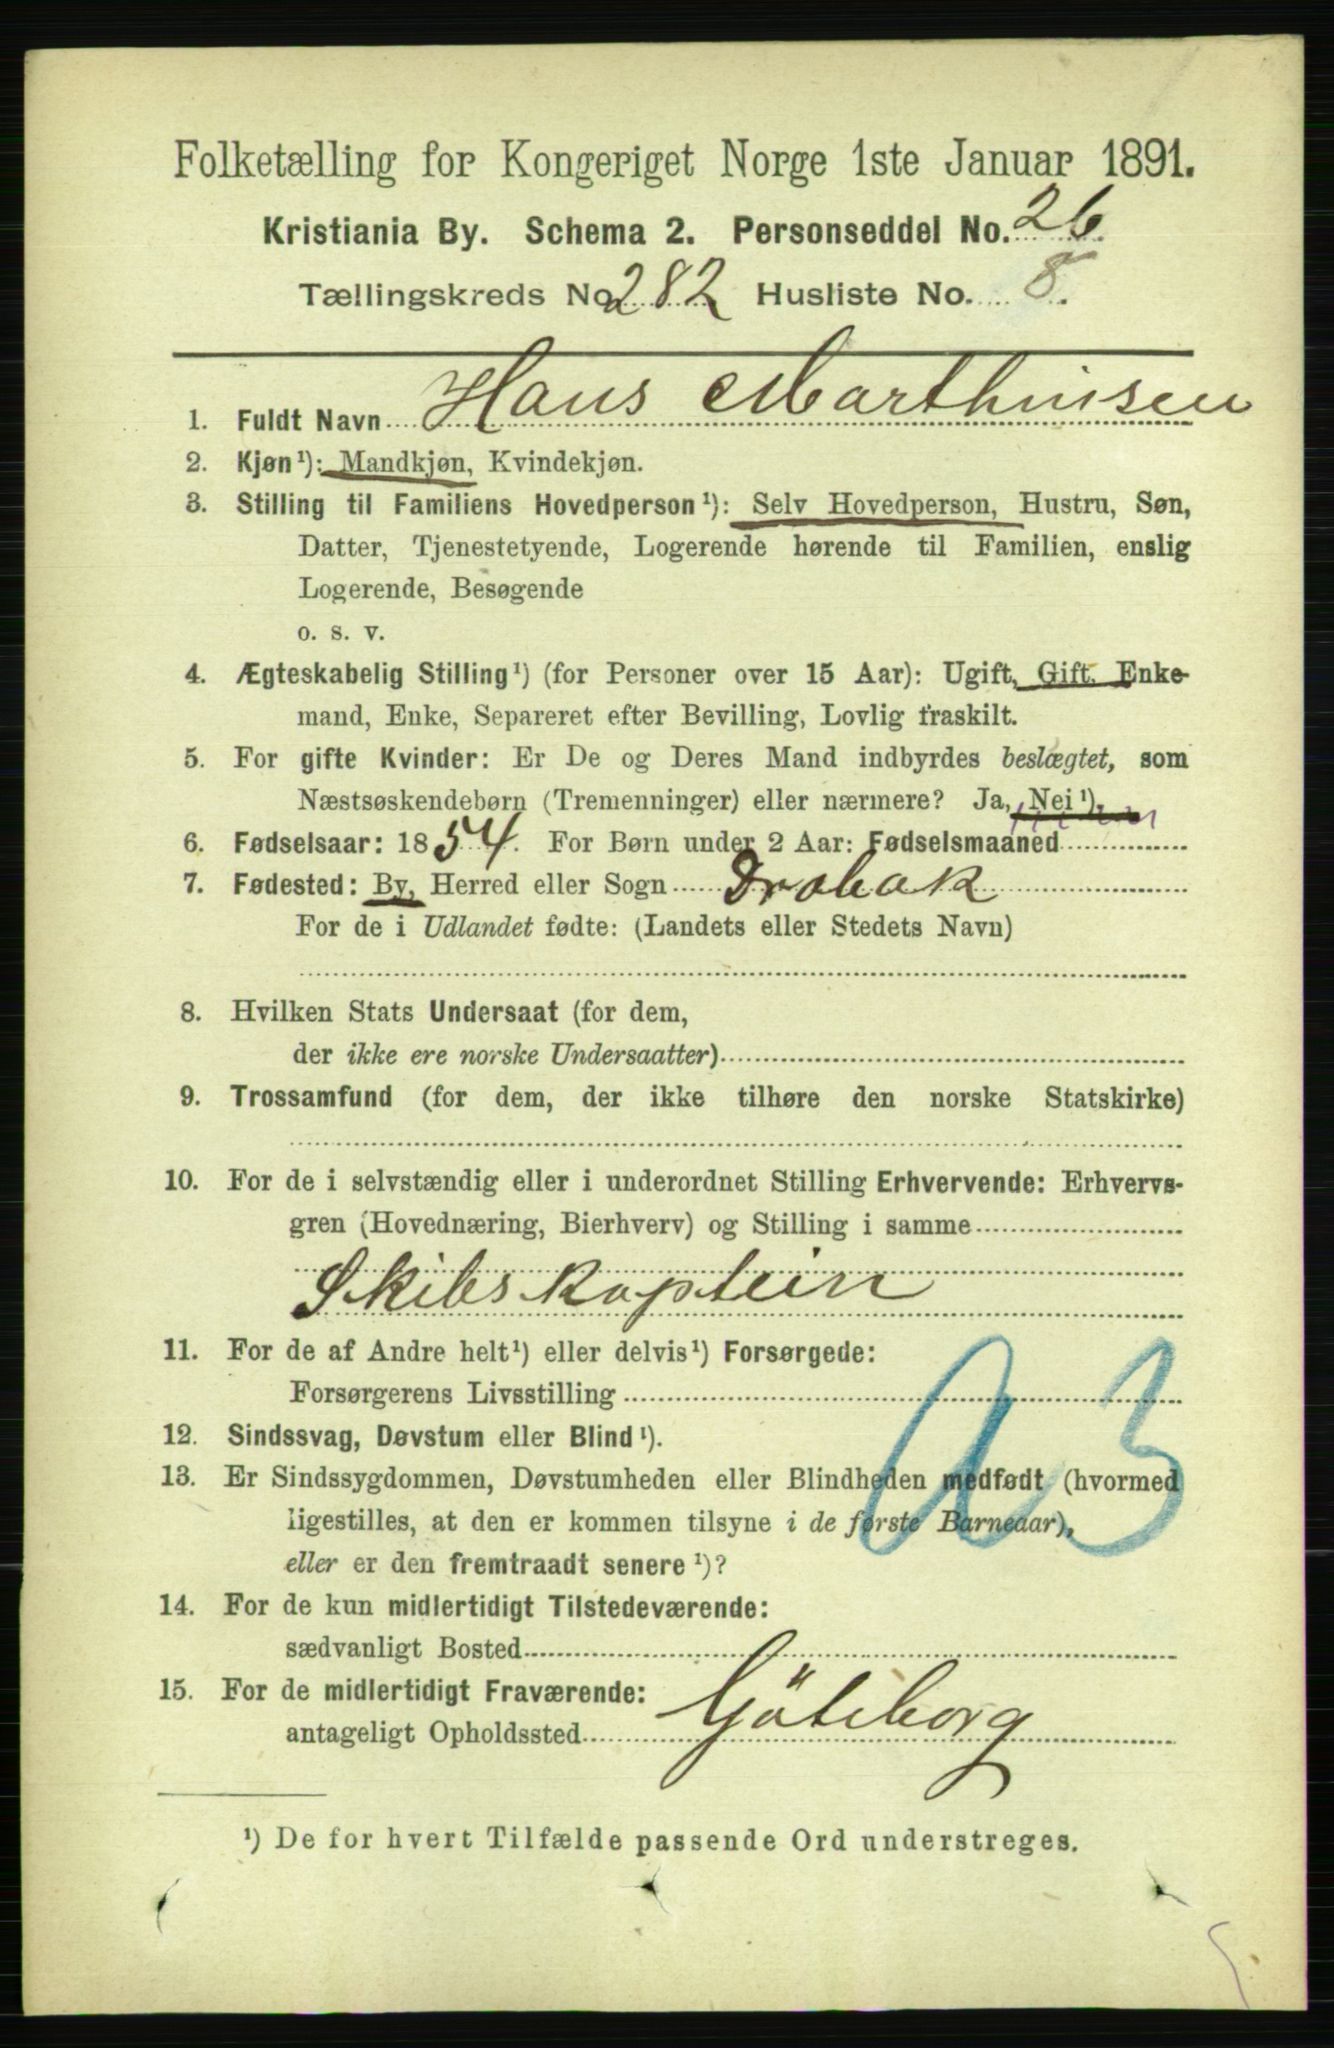 Folketælling for Kongeriget Norge 1ste Januar 1891.
Kristiania By. Schema 2. Personseddel No. 26.
Tællingskreds No. 282 Husliste No. 8.
1. Fuldt Navn Hans Marthinsen
2. Kjøn¹): Mandkjøn, Kvindekjøn.
3. Stilling til Familiens Hovedperson¹): Selv Hovedperson, Hustru, Søn,
Datter, Tjenestetyende, Logerende hørende til Familien, enslig
Logerende, Besøgende
o. s. v.
4. Ægteskabelig Stilling¹) (for Personer over 15 Aar): Ugift, Gift, Enke-
mand, Enke, Separeret efter Bevilling, Lovlig fraskilt.
5. For gifte Kvinder: Er De og Deres Mand indbyrdes beslægtet, som
Næstsøskendebørn (Tremenninger) eller nærmere? Ja, Nei¹).
6. Fødselsaar: 1854. For Børn under 2 Aar: Fødselsmaaned
7. Fødested: By, Herred eller Sogn Drøbak
For de i Udlandet fødte: (Landets eller Stedets Navn)
8. Hvilken Stats Undersaat (for dem,
der ikke ere norske Undersaatter)
9. Trossamfund (for dem, der ikke tilhøre den norske Statskirke)
10. For de i selvstændig eller i underordnet Stilling Erhvervende: Erhvervs-
gren (Hovednæring, Bierhverv) og Stilling i samme
Skibskaptein
11. For de af Andre helt¹) eller delvis¹) Forsørgede:
Forsørgerens Livsstilling
12. Sindssvag, Døvstum eller Blind¹).
13. Er Sindssygdommen, Døvstumheden eller Blindheden medfødt (hvormed
ligestilles, at den er kommen tilsyne i de første Barneaar),
eller er den fremtraadt senere¹)?
14. For de kun midlertidigt Tilstedeværende:
sædvanligt Bosted
15. For de midlertidigt Fraværende:
antageligt Opholdssted Göteborg
¹) De for hvert Tilfælde passende Ord understreges.